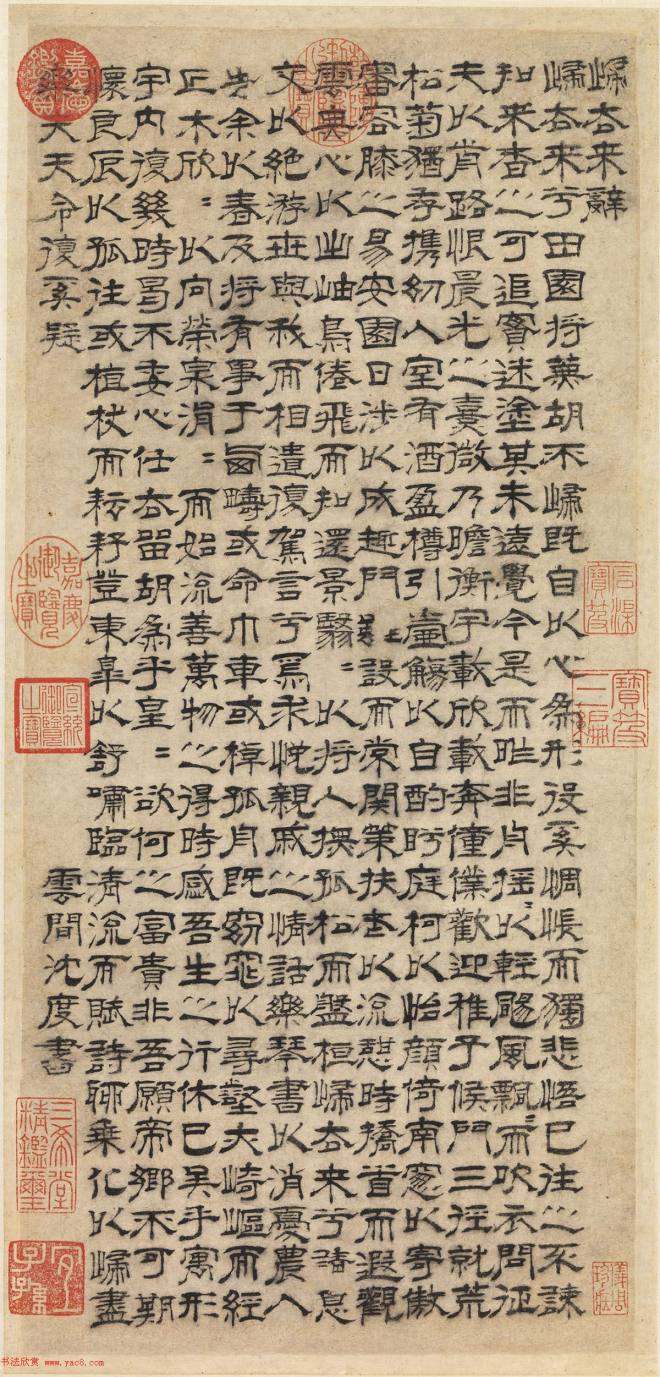 歸去來辭
歸去來兮田園將蕪胡不歸既自以心為形役奚惆悵而獨悲悟已往之不諫
知來者之可追實迷塗其未遠覺今是而昨非舟搖〻以輕颺風飄〻而吹衣問征
夫以前路恨晨光之熹微乃瞻衡宇載欣載奔僮僕歡迎稚子候門三徑就荒
松菊猶存携幼入室有酒盈樽引壺觴以自酌眄庭柯以怡顏倚南窓以寄傲
審容膝之易安園日涉以成趣門雖設而常關策扶老以流憩時矯首而遐觀
雲無心以出岫鳥倦飛而知還景翳〻以將入撫孤松而盤桓歸去來兮請息
交以絕游世與我而相遺復駕言兮焉求悅親戚之情話樂琴書以消憂農人
告余以春及將有事于西疇或命巾車或棹孤舟既窈窕以尋壑亦崎嶇而經
丘木欣〻以向榮泉涓〻而始流善萬物之得時感吾生之行休已矣乎寓形
宇內復幾時曷不委心任去留胡為乎皇〻欲何之富貴非吾願帝鄉不可期
懷良辰以孤往或植杖而耘耔登東皋以舒嘯臨清流而賦詩聊乘化以歸盡
樂夫天命復奚疑
雲間沈度書
石渠寶笈
寶笈三編
嘉慶御覽之寶
宣統御覽之寶
三希堂精鑑璽
宜子孫
书法欣赏 www.yac8.com